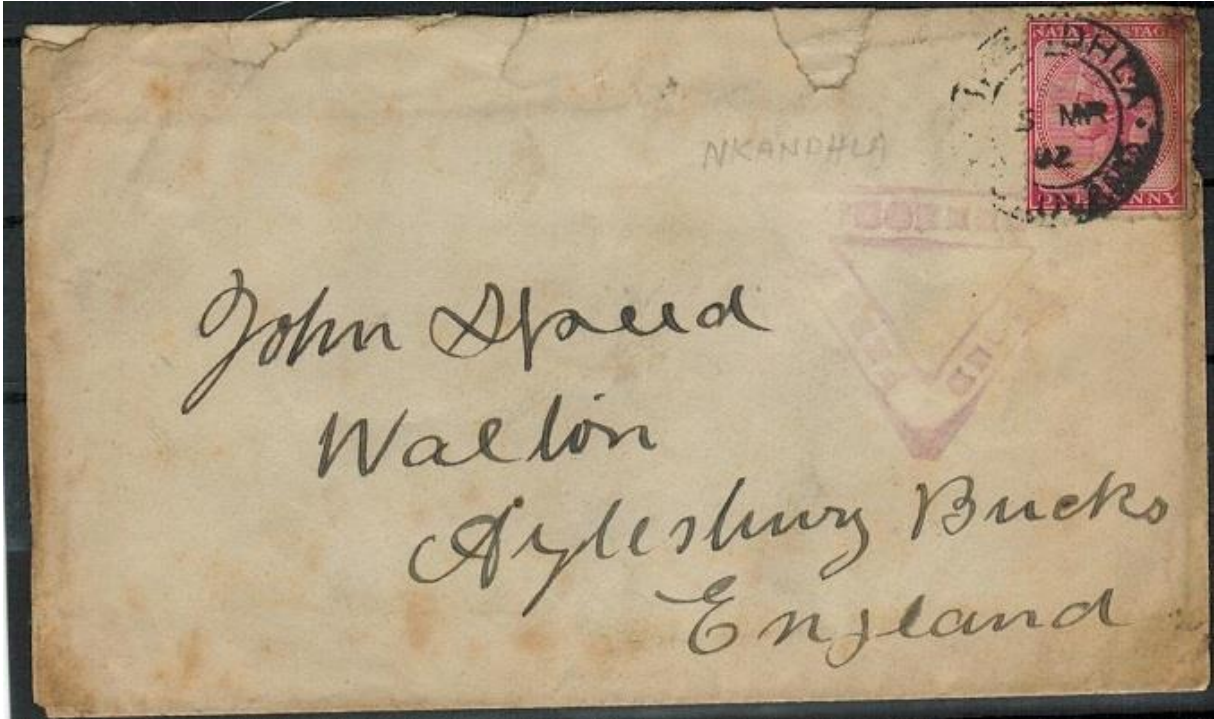 NATAL POSTAGE
NKANDHLA
MR
02
ONE PENNY
NKANDHLA
John Speed
Walton
Aylesbury Bucks
England